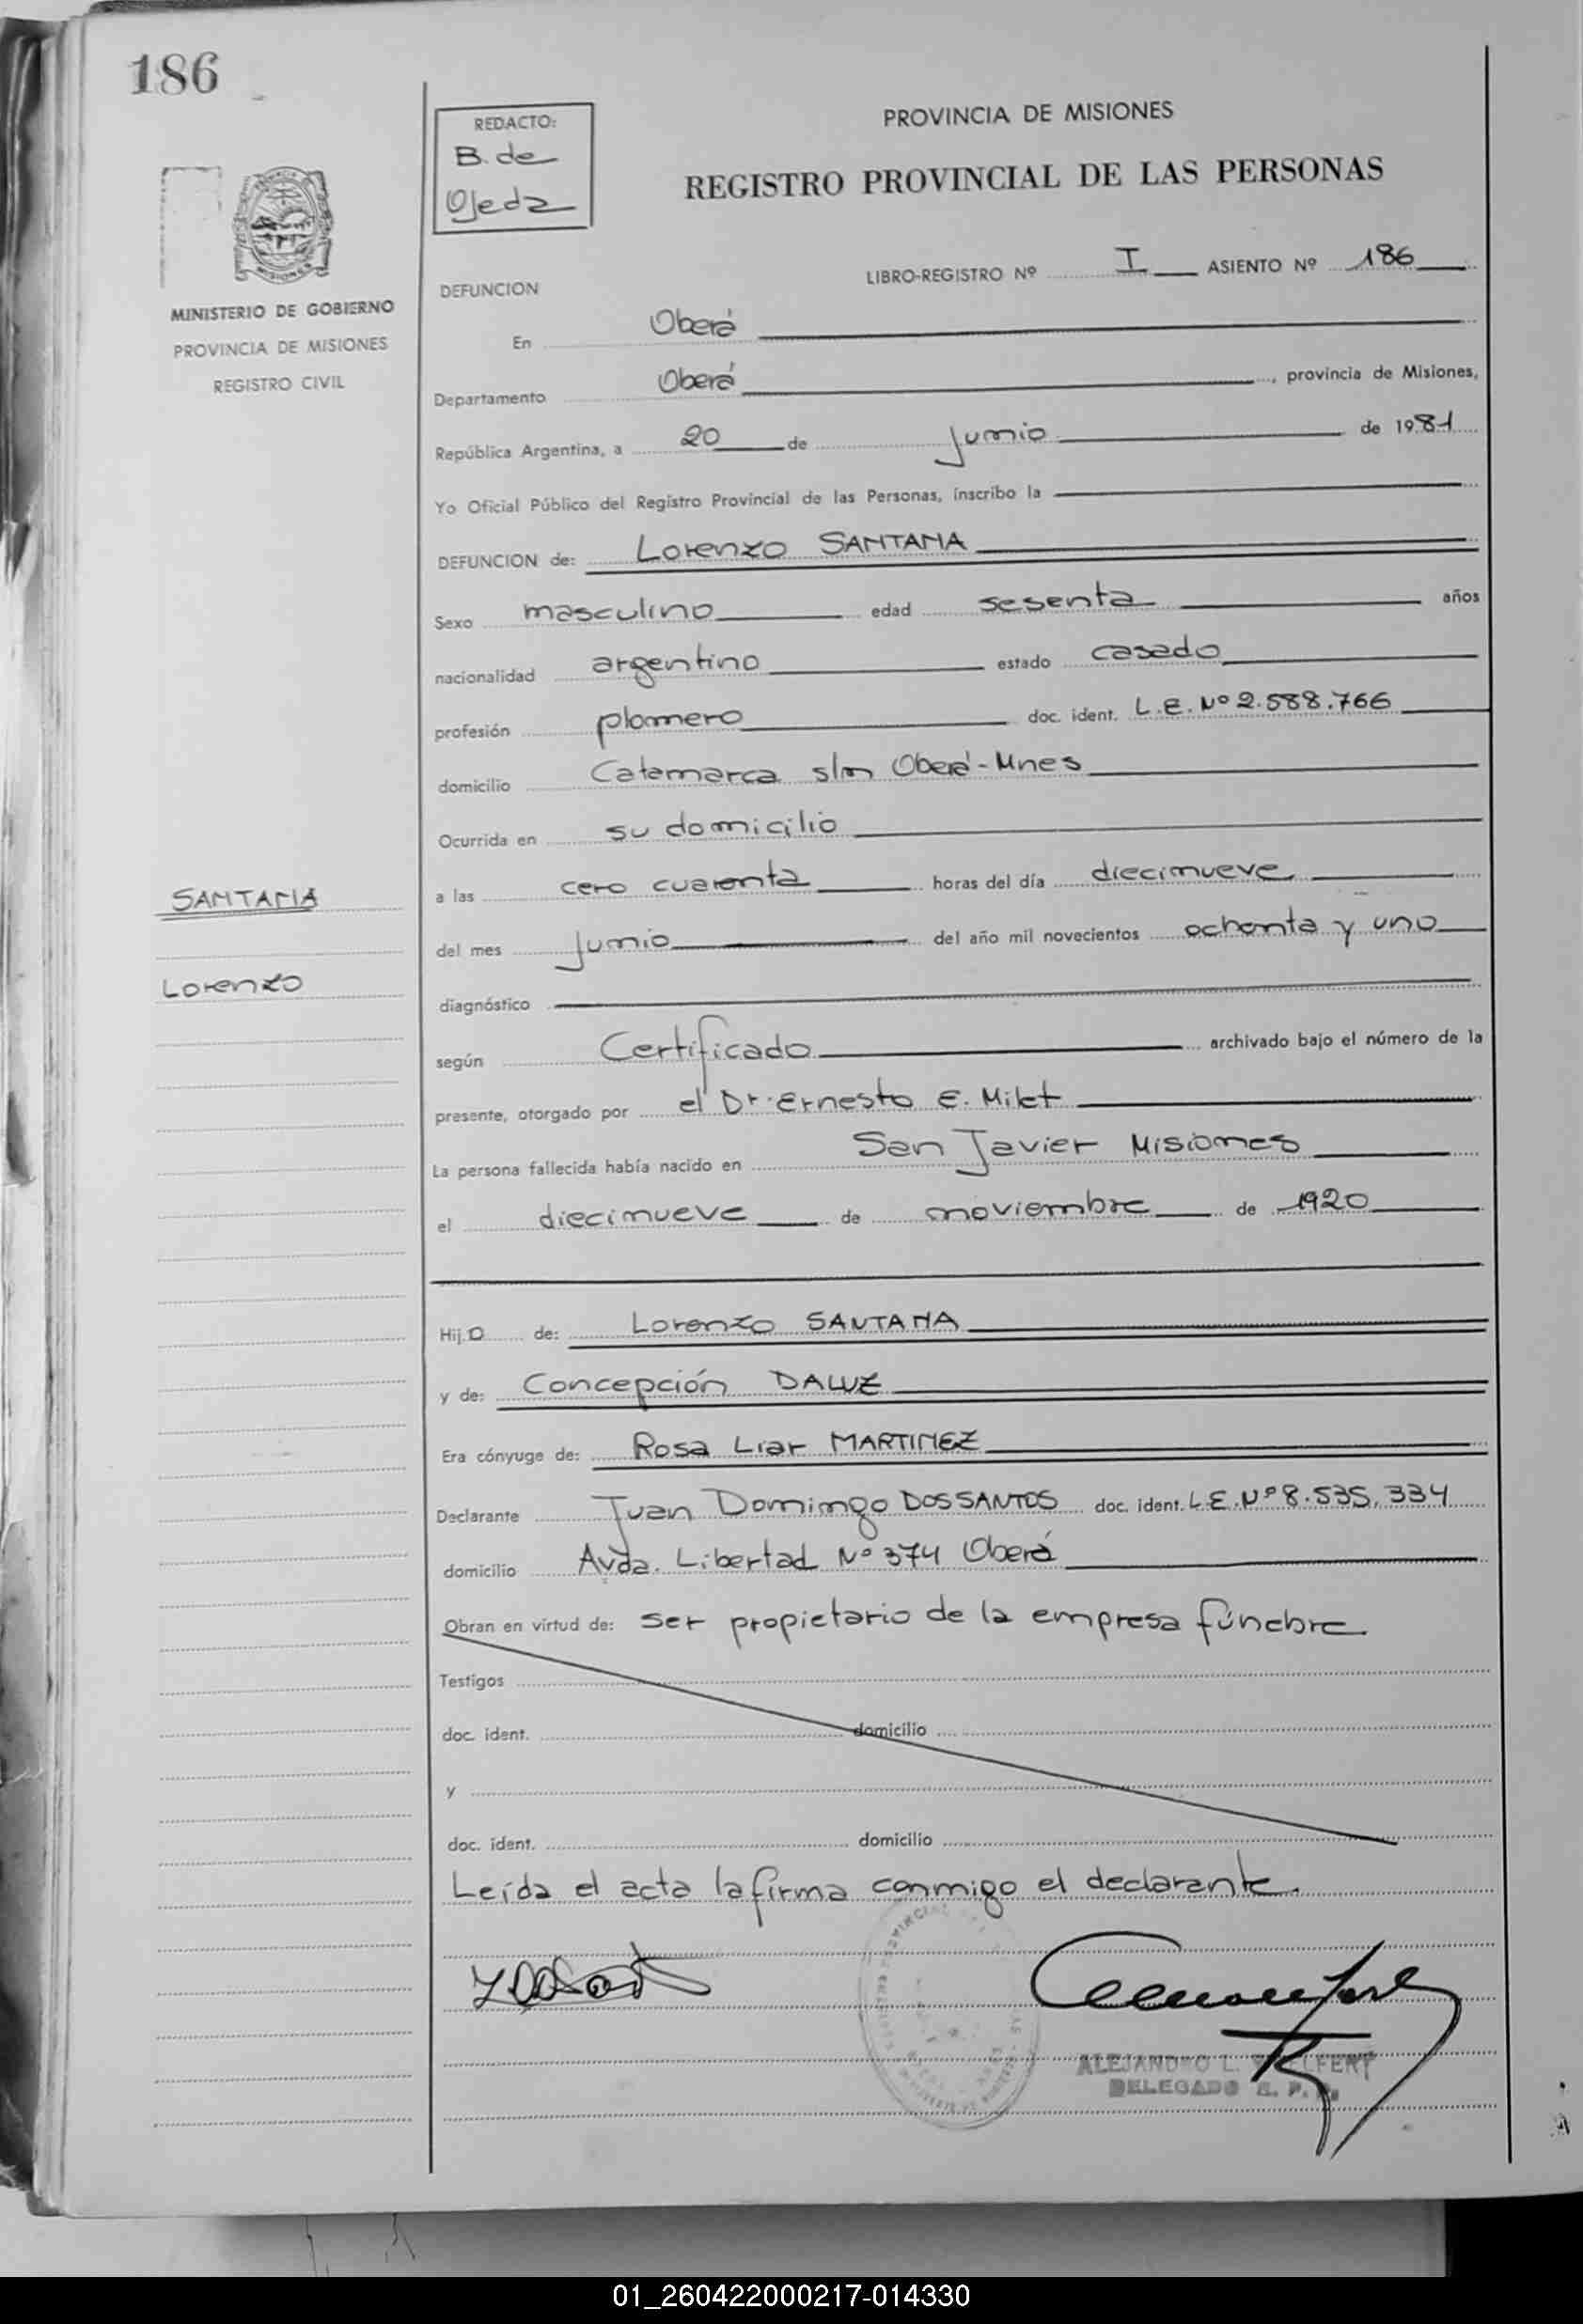 186
REDACTO:
B. de
Ojeda
PROVINCIA DE MISIONES
REGISTRO PROVINCIAL DE LAS PERSONAS
MISIONES
MINISTERIO DE GOBIERNO
PROVINCIA DE MISIONES
REGISTRO CIVIL
LIBRO-REGISTRO Nº I ASIENTO Nº 186
DEFUNCION
En Oberá
Departamento Oberá, provincia de Misiones,
República Argentina, a 20 de junio de 1981
Yo Oficial Público del Registro Provincial de las Personas, inscribo la
DEFUNCION de: Lorenzo SANTANA
Sexo masculino edad sesenta años
nacionalidad argentino estado casado
profesión plomero doc. ident. L.E. Nº 2.588.766
domicilio Catamarca s/n Oberá-Mnes
Ocurrida en su domicilio
a las cero cuarenta horas del día diecinueve
del mes junio del año mil novecientos ochenta y uno
diagnóstico
según Certificado archivado bajo el número de la
presente, otorgado por el Dr. Ernesto E. Milet
La persona fallecida había nacido en San Javier Misiones
el diecinueve de noviembre de 1920
SANTANA
Lorenzo
Hijo de: Lorenzo SANTANA
y de: Concepción DALUZ
Era cónyuge de: Rosa Liar MARTINEZ
Declarante Juan Domingo DOSSANTOS doc. ident. L.E. Nº 8.535.334
domicilio Avda. Libertad Nº 374 Oberá
Obran en virtud de: ser propietario de la empresa fúnebre
Testigos
doc. ident. domicilio
y
doc. ident. domicilio
Leída el acta la firma conmigo el declarante.
ALEJANDRO L.
DELEGADO R. P. P.
01_260422000217-014330